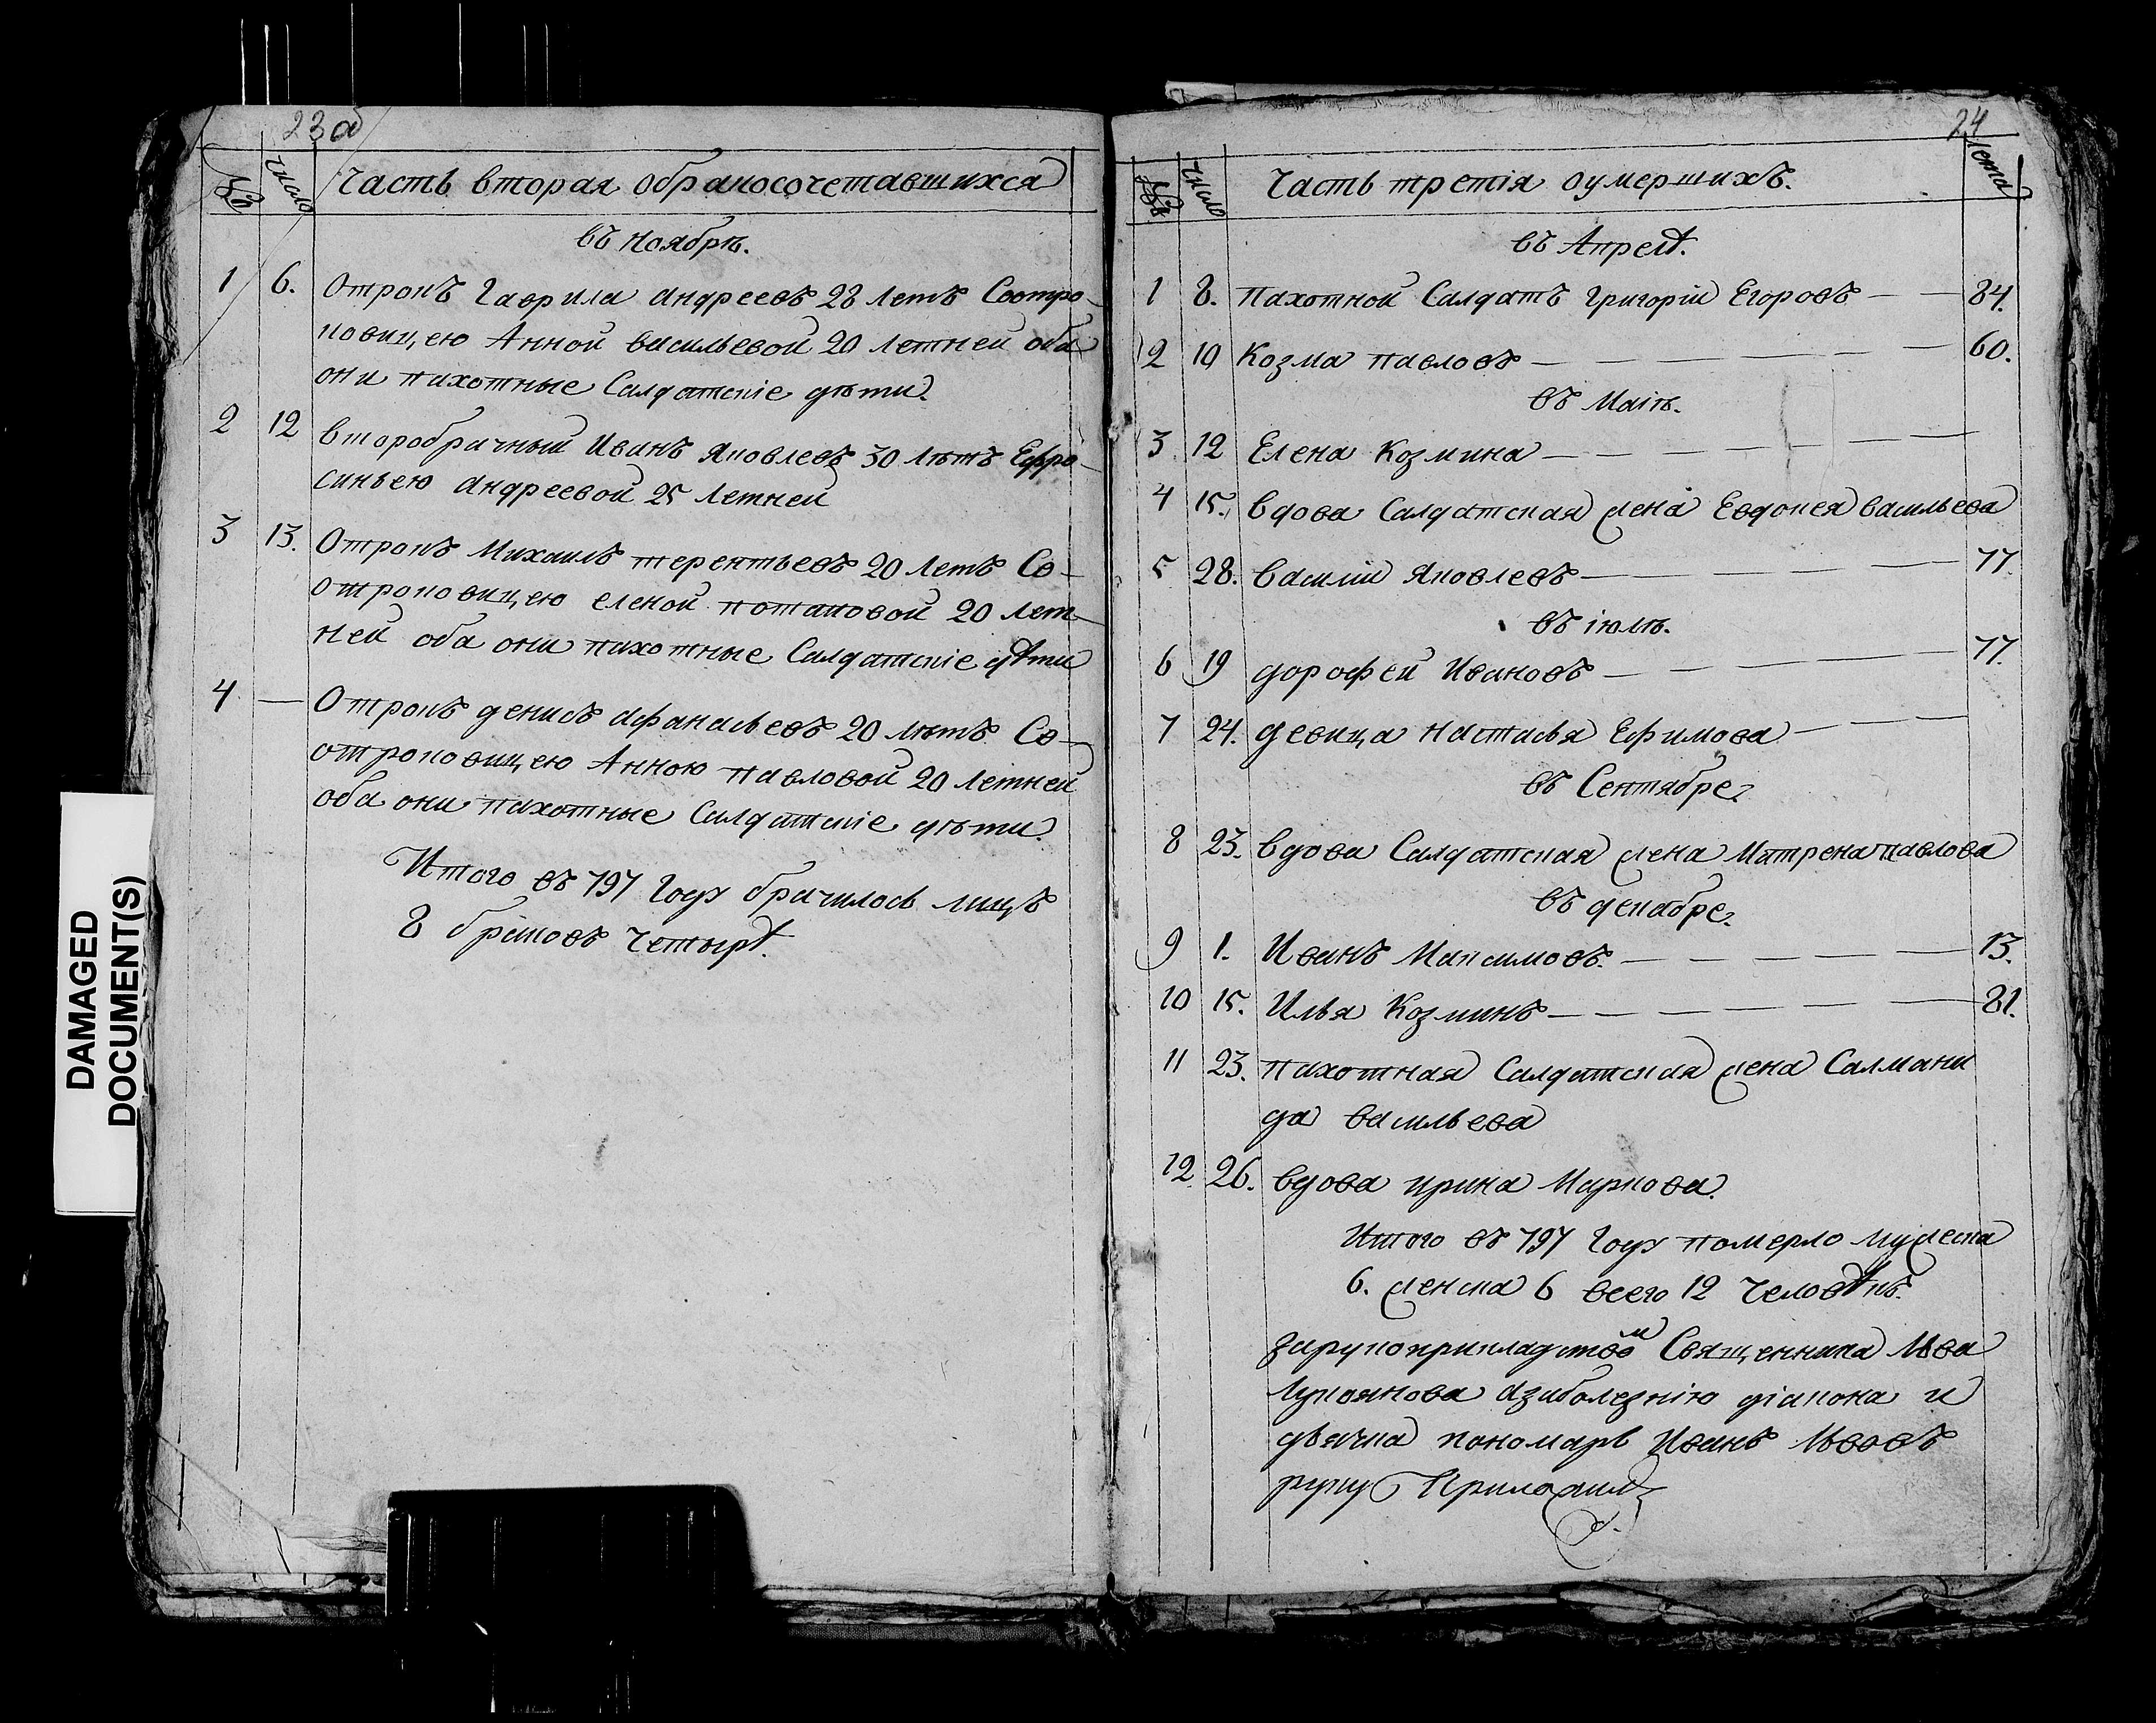 23 а
№ Число Часть вторая обраносочетавшихся
въ ноябрѣ.
1 6. Отрокъ Гаврила андреевъ 28 летъ Соотро-
ковицею Анной васильевой 20 летней оба
они пахотные Салдатскіе дѣти.
2 12 второбрачный Иванъ Яковлевъ 30 лѣтъ Ефро-
синьею андреевой 25 летней
3 13. Отрокъ Михаилъ терентьевъ 20 летъ Со-
отроковицею еленой потаповой 20 лет-
ней оба они пахотные Салдатскіе дѣти
4 — Отрокъ денисъ афанасьевъ 20 лѣтъ Со-
отроковицею Анною павловой 20 летней
оба они пахотные Салдатскіе дѣти.
Итого въ 797 году бρачилось лицъ
8 браковъ четырѣ.
24
№ Число Часть третія оумершихъ. Лета
въ Апрелѣ.
1 8. пахотной Салдатъ григорій Егоровъ — — 84.
2 10 Козма павловъ — — — — — — 60.
въ Маіѣ.
3 12 Елена Козмина — — — — — — —
4 15. вдова Салдатская жена Евдокея васильева
5 28. василій Яковлевъ — — — — — 77.
въ іюлѣ.
6 19 дорофей Ивановъ — — — — — 77.
7 24. девица настасья Ефимова — — —
въ Сентябре.
8 23. вдова Салдатская жена Матрена павлова
въ декабре.
9 1. Иванъ Максимовъ. — — — — — 13.
10 15. Илья Козминъ — — — — — — 81.
11 23. пахотная Салдатская жена Салмани
да васильева
12 26. вдова ирина Маркова.
Итого въ 797 году померло мужеска
6. женска 6 всего 12 человѣкъ.
зарукоприкладством Священника Льва
Лукоянова азаболезнію діакона и
дьячка пономарь Иванъ Львовъ
руку Приложилъ